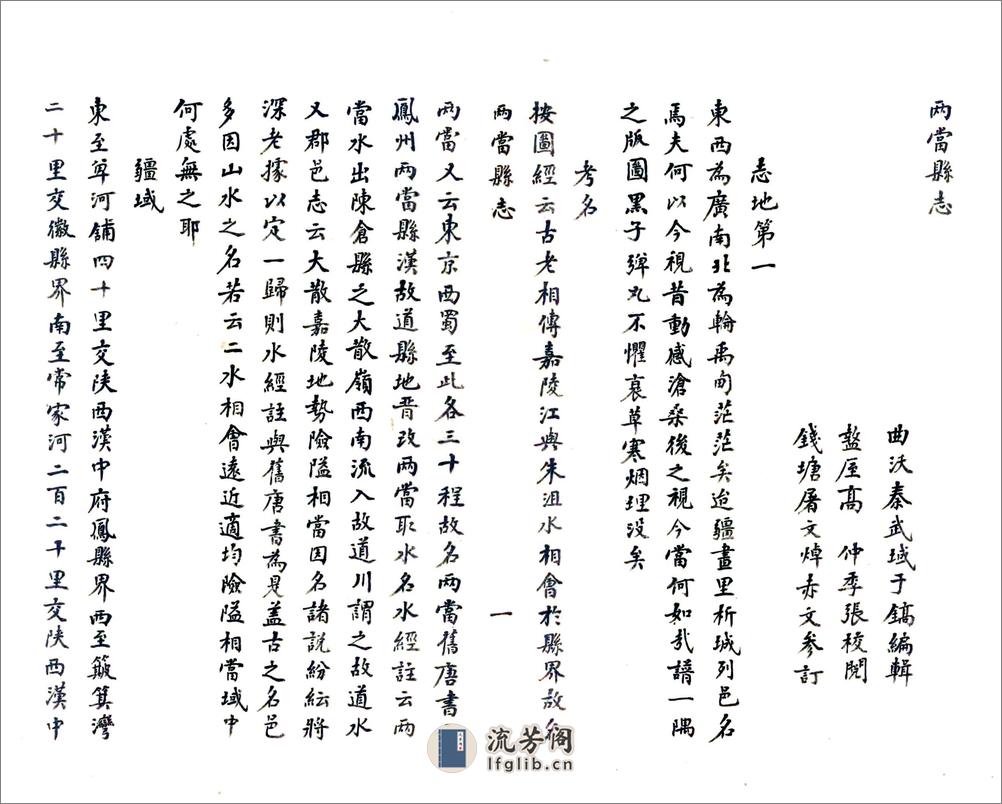 两當縣志
曲沃秦武域于鎬編輯
盩厔高 仲季張校閱
錢塘屠文焯赤文參訂
志地第一
東西為廣南北為輪禹甸茫茫矣迨疆畫里析城列邑名
焉夫何以今視昔動感滄桑後之視今當何如哉譜一隅
之版圖黑子彈丸不懼衰草寒烟埋没矣
考名
按圖經云古老相傳嘉陵江與朱沮水相會於縣界故名
两當縣志 一
两當又云東京西蜀至此各三十程故名两當舊唐書
鳳州两當縣漢故道縣地晋改两當取水名水經註云两
當水出陳倉縣之大散嶺西南流入故道川謂之故道水
又郡邑志云大散嘉陵地勢險隘相當因名諸説紛紜將
深老據以定一歸則水經註與舊唐書為是盖古之名邑
多因山水之名若云二水相會遠近適均險隘相當域中
何處無之耶
疆域
東至單河鋪四十里交陕西漢中府鳳縣界西至簸箕灣
二十里交徽縣界南至常家河二百二十里交陕西漢中
流芳阁
lfglib.cn